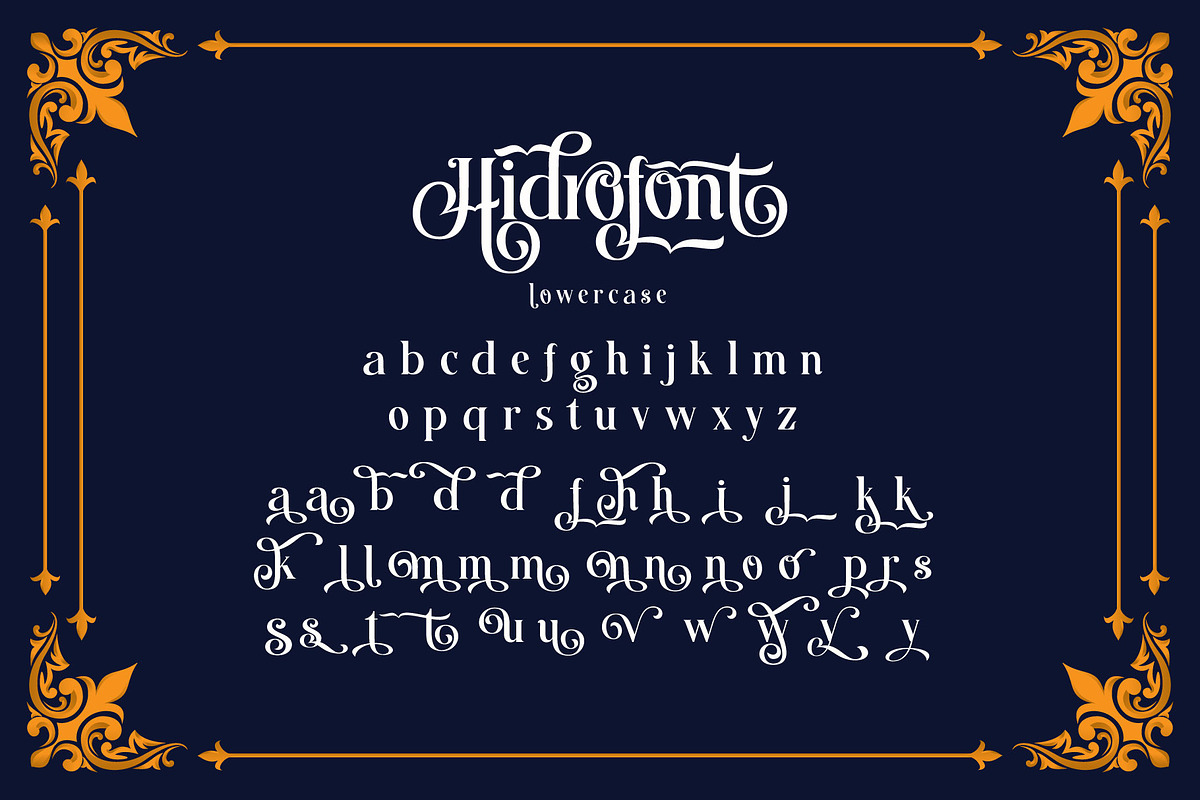 Hidrofont
lowercase
a b c d e f g h i j k l m n
o p q r s t u v w x y z
a a b d d f h h i j k k
k l l m m m n n n o o p r s
s s t t u u v w w y y